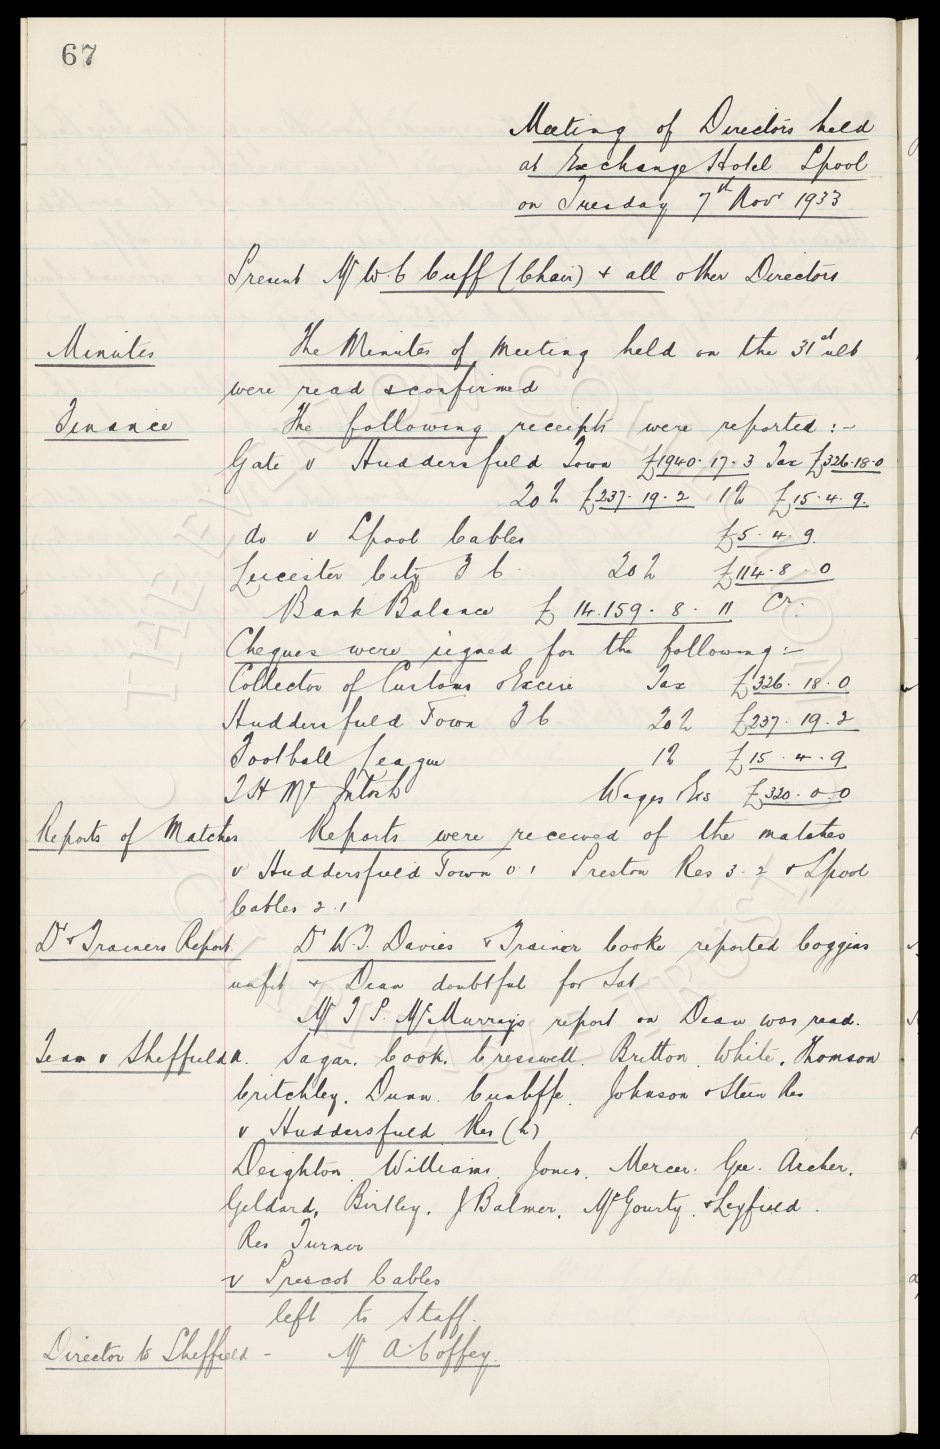 67
Meeting of Directors held
at Exchange Hotel Lpool
on Tuesday 7th Novr 1933
Present Mr W.C Cuff (Chair) + all other Directors
Minutes The Minutes of Meeting held on the 31st ult
were read & confirmed
Finance The following receipts were reported :-
Gate v Huddersfield Town £1940.17.3 Tax £326.18.0
20% £237.19.2 1% £15.4.9.
do v Lpool Cables £5.4.9.
Leicester City F C. 20% £114.8.0
Bank Balance £14.159.8.11 Cr.
Cheques were signed for the following :-
Collector of Customs & Excise Tax £326.18.0
Huddersfield Town F C 20% £237.19.2
Football League 1% £15.4.9
T H McIntosh Wages & Exs £320.0.0
Reports of Matches Reports were received of the matches
v Huddersfield Town 0.1 Preston Res 3.2 & Lpool
Cables 2.1
Dr & Trainers Report. Dr W.T. Davies & Trainer Cooke reported Coggins
unfit & Dean doubtful for Sat
Mr T P. McMurray's report on Dean was read.
Team v Sheffield A. Sagar. Cook. Cresswell. Britton. White. Thomson
Critchley. Dunn. Cunliffe. Johnson & Stein Res
v Huddersfield Res (h)
Deighton. Williams. Jones. Mercer. Gee. Archer.
Geldard, Birtley. J Balmer. McGourty. & Leyfield.
Res Turner
v Prescot Cables
left to Staff.
Director to Sheffield - Mr A. Coffey.
THE EVERTON COLLECTION
CHARITABLE TRUST